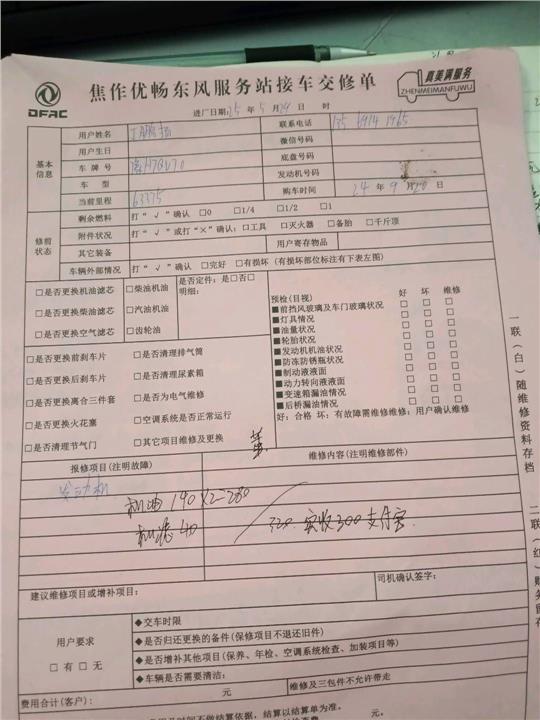 焦作优畅东风服务站接车交修单
DFAC
真美满服务
ZHENMEIMANFUWU
进厂日期: 25 年 5 月 24 日 时
基本信息
用户姓名
联系电话 135 6914 1965
用户生日
微信号码
车 牌 号 豫H7QV70
底盘号码
车 型
发动机号码
当前里程 63375
购车时间 24 年 9 月 20 日
修前状态
剩余燃料 打“√”确认 □0 □1/4 □1/2 □1
附件状况 打“√”或打“×”确认:□工具 □灭火器 □备胎 □千斤顶
其它装备
用户寄存物品
车辆外部情况 打“√”确认 □完好 □有损坏 (有损坏部位标注有下表左图)
□是否更换机油滤芯 □柴油机油
□是否更换柴油滤芯 □汽油机油
□是否更换空气滤芯 □齿轮油
是否定件: 是□否□
明细:
□是否更换前刹车片 □是否清理排气筒
□是否更换后刹车片 □是否清理尿素箱
□是否更换离合三件套 □是否为电气维修
□是否更换火花塞 □空调系统是否正常运行
□是否清理节气门 □其它项目维修及更换
预检(目视) 好 坏 维修
■前挡风玻璃及车门玻璃状况 □ □ □
■灯具情况 □ □ □
■油量状况 □ □ □
■轮胎状况 □ □ □
■发动机机油状况 □ □ □
■防冻防锈瓶状况 □ □ □
■制动液液面 □ □ □
■动力转向液液面 □ □ □
■变速箱漏油情况 □ □ □
■后桥漏油情况 □ □ □
好:合格 坏:有故障需维修维修:用户确认维修
报修项目(注明故障)
维修内容(注明维修部件)
发动机
机油 140×2=280
机滤 40
320. 实收300支付宝
建议维修项目或增补项目:
司机确认签字:
用户要求
□有 □无
◆交车时限
◆是否归还更换的备件(保修项目不退还旧件)
◆是否增补其他项目(保养、年检、空调系统检查、加装项目等)
◆车辆是否需要清洁:
费用合计(客户): 元
元
维修及三包件不允许带走
时间不做结算依据,结算以结算单为准。
一联(白)随维修资料存档
二联(红)